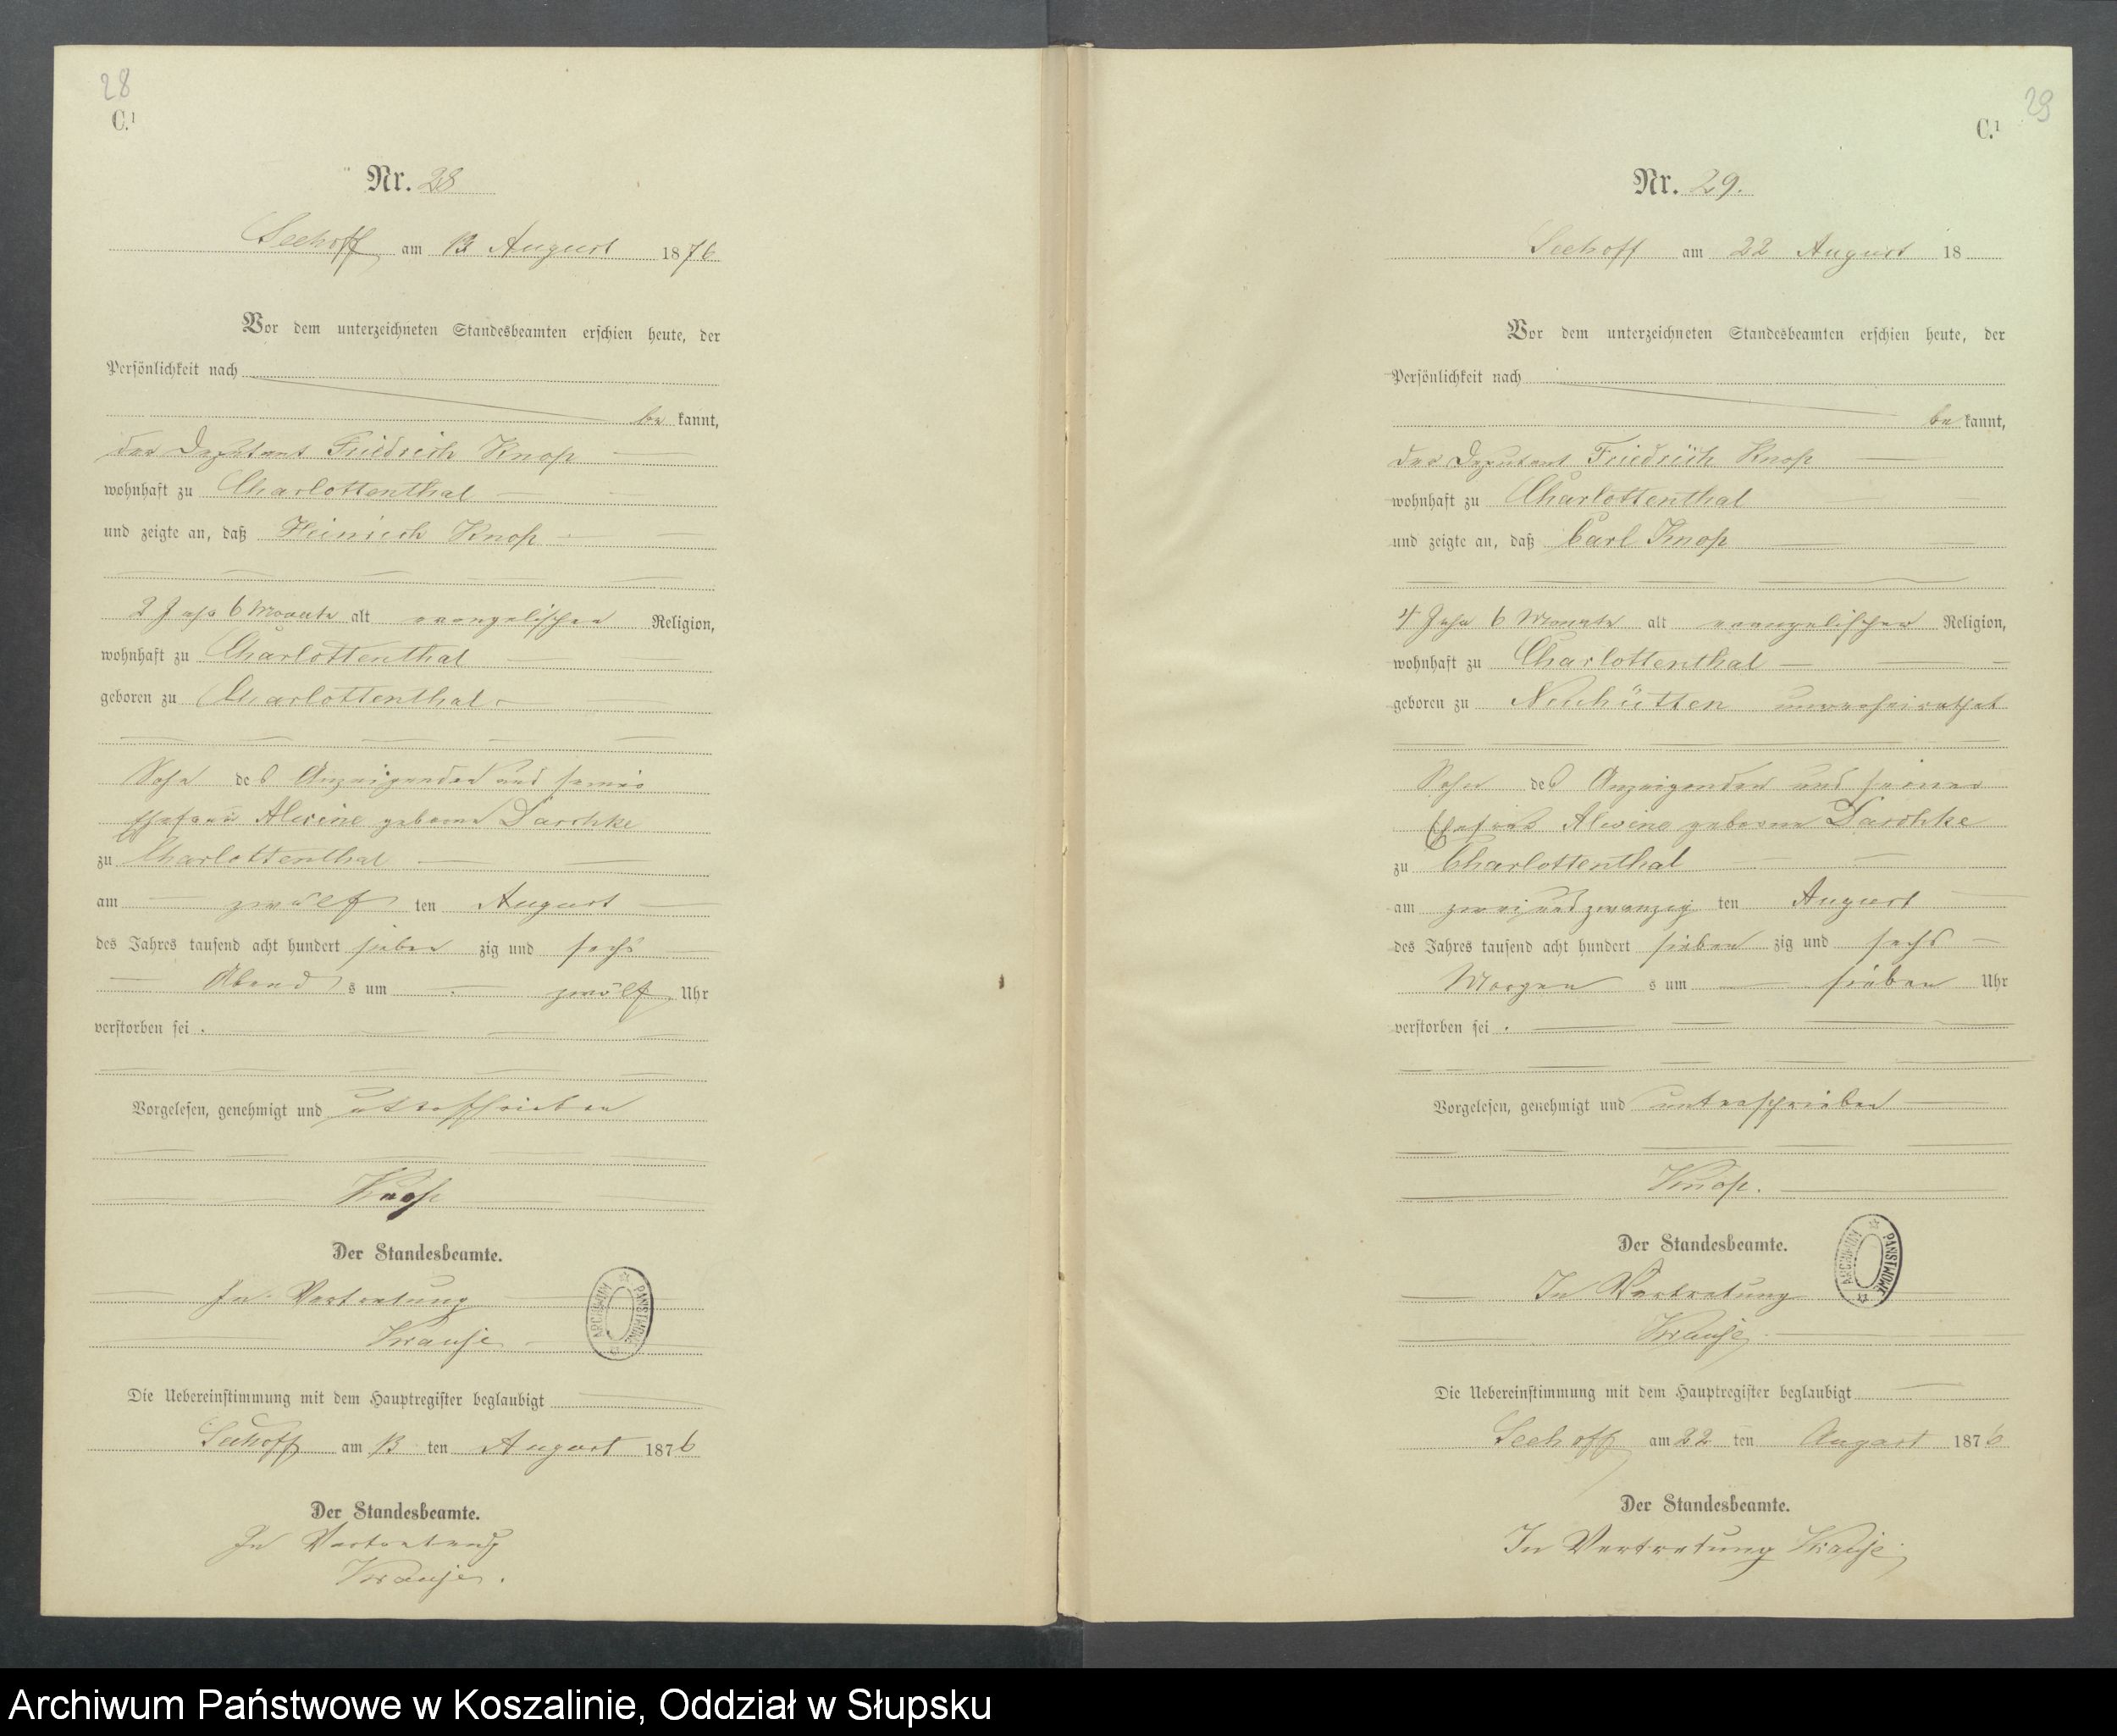 28
C.1
Nr. 28
Seehoff am 13 August 1876
Vor dem unterzeichneten Standesbeamten erschien heute, der
Persönlichkeit nach
be kannt,
der Deputant Friedrich Knop
wohnhaft zu Charlottenthal
und zeigte an, daß Heinrich Knop
2 Jahr 6 Monate alt evangelischer Religion,
wohnhaft zu Charlottenthal
geboren zu Charlottenthal
Sohn des Anzeigenden und seiner
Ehefrau Alwine geborne Darschke
zu Charlottenthal
am zwölf ten August
des Jahres tausend acht hundert sieben zig und sechs
Abend s um zwölf Uhr
verstorben sei.
Vorgelesen, genehmigt und unterschrieben
Knop
Der Standesbeamte.
In Vertretung
Krause
ARCHIWUM PAŃSTWOWE
Die Uebereinstimmung mit dem Hauptregister beglaubigt
Seehoff am 13 ten August 1876
Der Standesbeamte.
In Vertretung
Krause.
29
C.1
Nr. 29.
Seehoff am 22 August 18
Vor dem unterzeichneten Standesbeamten erschien heute, der
Persönlichkeit nach
be kannt,
der Deputant Friedrich Knop
wohnhaft zu Charlottenthal
und zeigte an, daß Carl Knop
4 Jahr 6 Monate alt evangelischer Religion,
wohnhaft zu Charlottenthal
geboren zu Neuhütten unverheirathet
Sohn des Anzeigenden und seiner
Ehefrau Alwine geborne Darschke
zu Charlottenthal
am zweiundzwanzig ten August
des Jahres tausend acht hundert sieben zig und sechs
Morgen s um sieben Uhr
verstorben sei.
Vorgelesen, genehmigt und unterschrieben
Knop.
Der Standesbeamte.
In Vertretung
Krause
ARCHIWUM PAŃSTWOWE
Die Uebereinstimmung mit dem Hauptregister beglaubigt
Seehoff am 22 ten August 1876
Der Standesbeamte.
In Vertretung Krause
Archiwum Państwowe w Koszalinie, Oddział w Słupsku